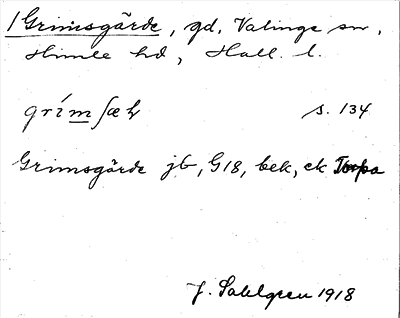 /Grimsgärde, gd, Valinge sn,
Himle hd, Hall. l.
grímsæk s. 134
Grimsgärde jb, G18, bek, ek Torpa
J. Sahlgren 1918